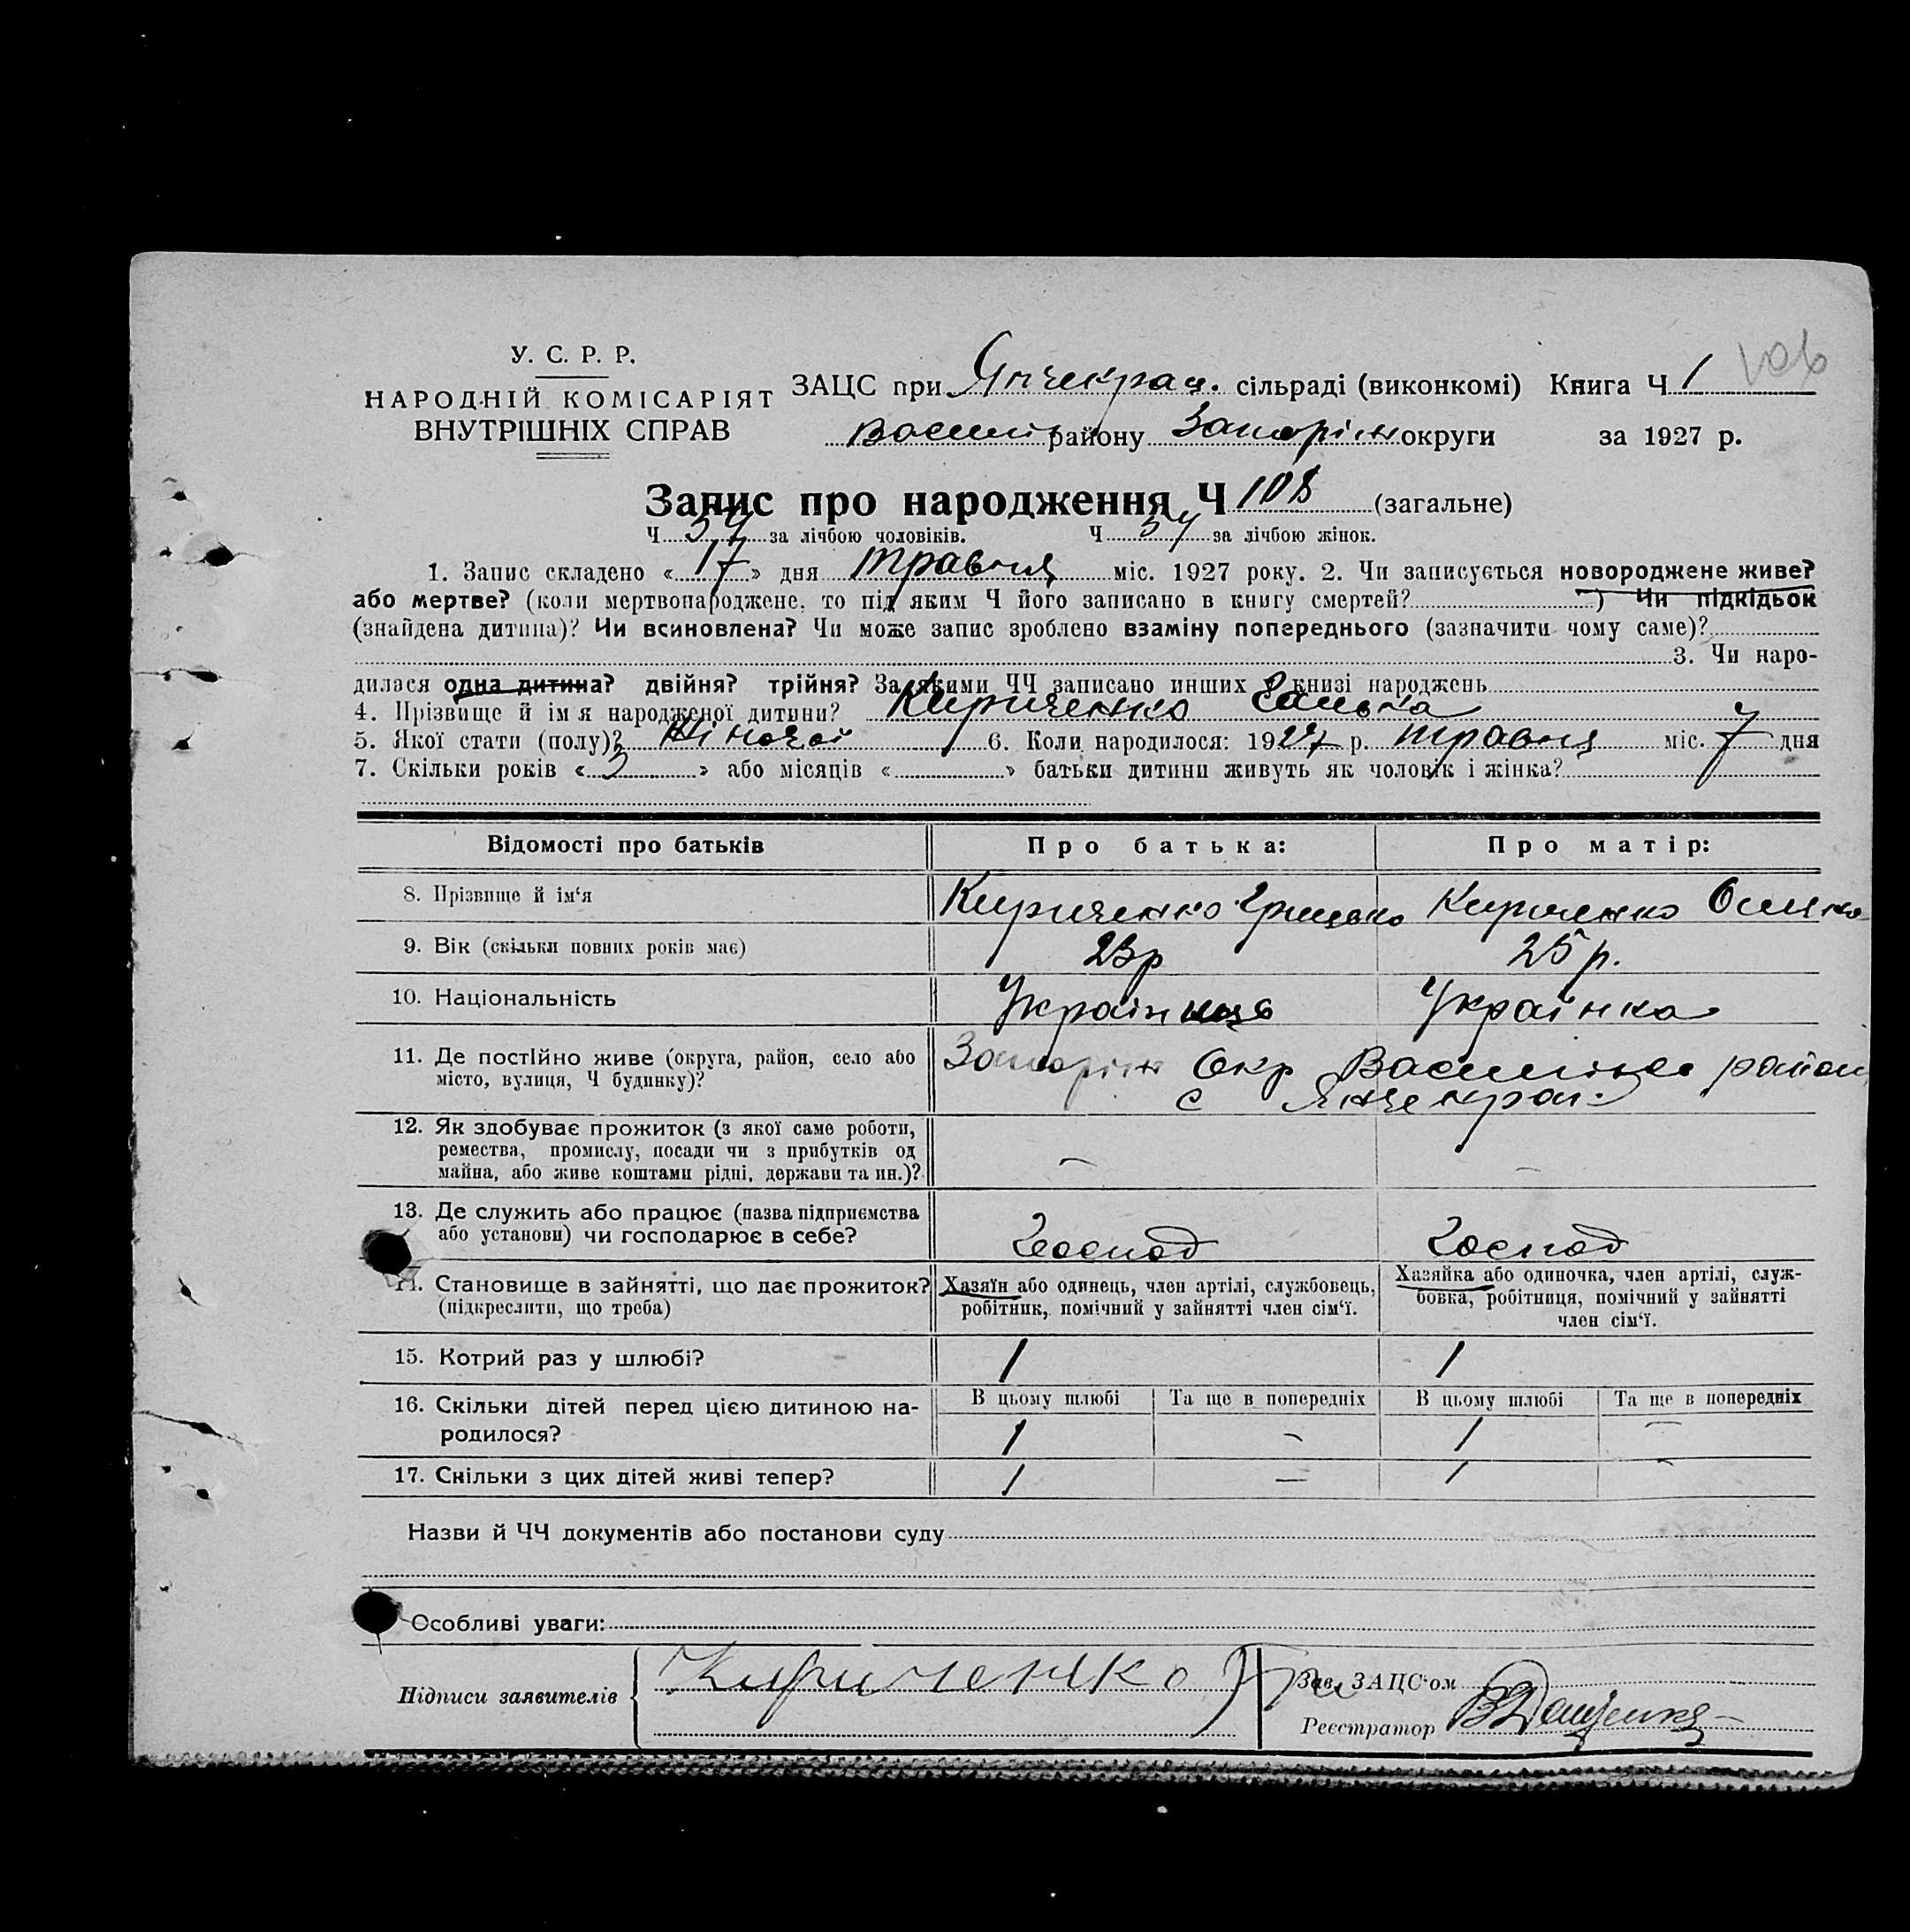 У. С. Р. Р.
НАРОДНІЙ КОМІСАРІЯТ
ВНУТРІШНІХ СПРАВ
ЗАЦС при Янчекрац. сільраді (виконкомі) Книга Ч 1
Василів району Запоріж округи за 1927 р.
Запис про народження Ч 108 (загальне)
Ч 54 за лічбою чоловіків. Ч 54 за лічбою жінок.
1. Запис складено « 17 » дня травня міс. 1927 року. 2. Чи записується новороджене живе?
або мертве? (коли мертвонароджене, то під яким Ч його записано в книгу смертей? ) Чи підкідьок
(знайдена дитина)? Чи всиновлена? Чи може запис зроблено взаміну попереднього (зазначити чому саме)?
3. Чи наро-
дилася одна дитина? двійня? трійня? За якими ЧЧ записано инших у книзі народжень
4. Прізвище й ім я народженої дитини? Кириченко Галька
5. Якої стати (полу)? Жіночої 6. Коли народилося: 1927 р. травня міс. 7 дня
7. Скільки років « 3 » або місяців « » батьки дитини живуть як чоловік і жінка?
Відомості про батьків Про батька: Про матір:
8. Прізвище й ім'я Кириченко Грицько Кириченко
9. Вік (скільки повних років має) 23р 25 р.
10. Національність Українець Українка
11. Де постійно живе (округа, район, село або
місто, вулиця, Ч будинку)? Запоріж Окр Василівсь район
с Янчекрак
12. Як здобуває прожиток (з якої саме роботи,
ремества, промислу, посади чи з прибутків од
майна, або живе коштами рідні, держави та ин.)? — —
13. Де служить або працює (назва підприємства
або установи) чи господарює в себе? Господ Господ
14. Становище в зайнятті, що дає прожиток?
(підкреслити, що треба)
Хазяїн або одинець, член артілі, службовець,
робітник, помічний у зайнятті член сім'ї.
Хазяйка або одиночка, член артілі, служ-
бовка, робітниця, помічний у зайнятті
член сім'ї.
15. Котрий раз у шлюбі? 1 1
В цьому шлюбі Та ще в попередніх В цьому шлюбі Та ще в попередніх
16. Скільки дітей перед цією дитиною на-
родилося? 1 — 1 —
17. Скільки з цих дітей живі тепер? 1 — 1 -
Назви й ЧЧ документів або постанови суду
Особливі уваги:
Підписи заявителів Кириченко Гри
Зав. ЗАЦС'ом
Реєстратор